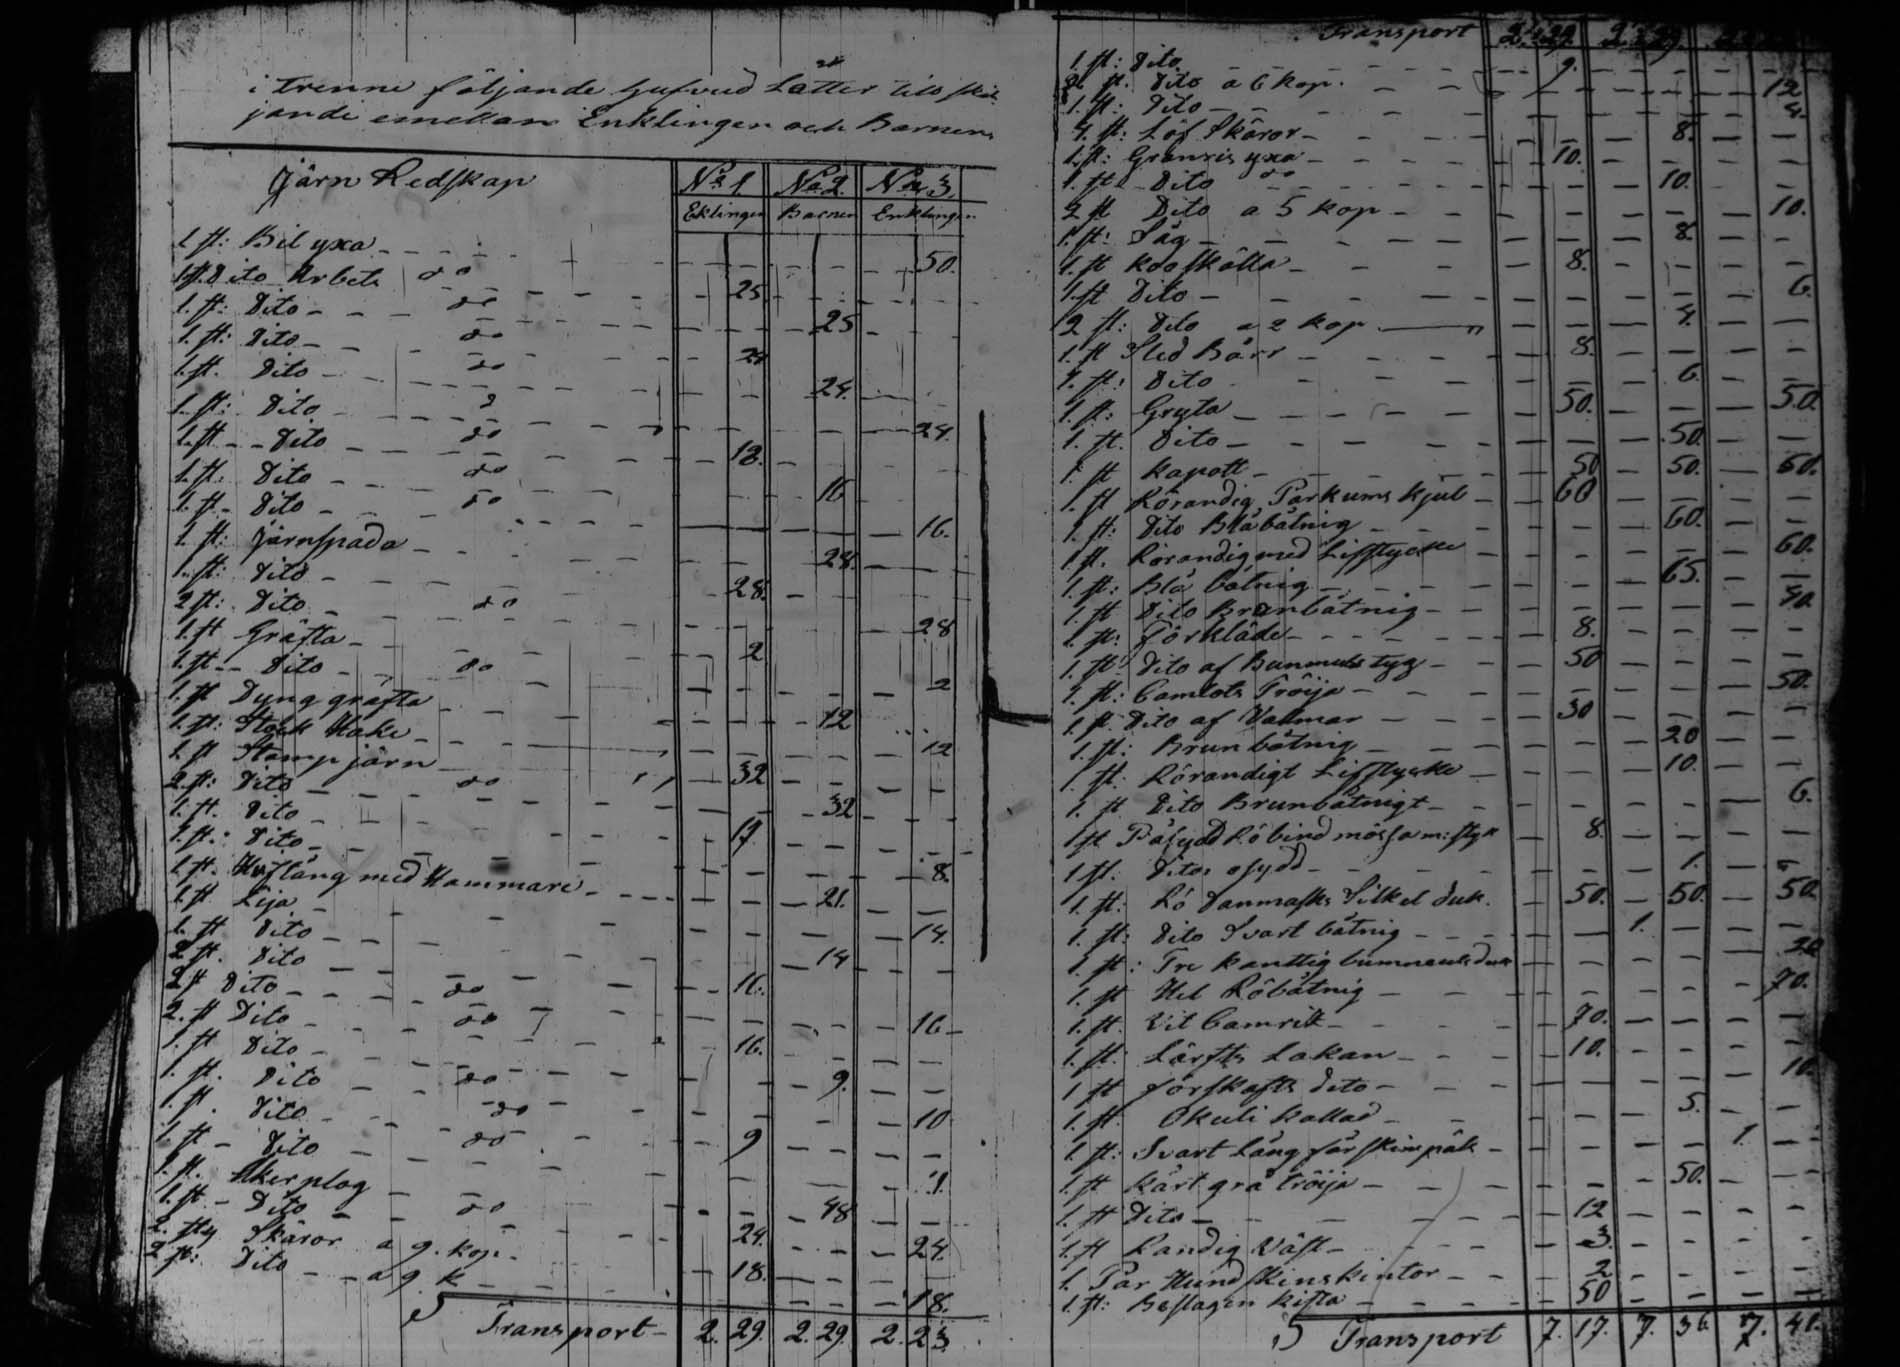 i trenne följande hufvud Låtter till skil
jande emellan Enklingen och Barnen
Järn Redskap No 1 No 2 No 3
Eklingen Barnen Enklingen
1 st: Bil yxa 50.
1 st Dito Arbets do 25
1. st: Dito do 25
1. st: Dito do 24
1. st. Dito do 24.
1. st: Dito 24.
1. st Dito do 18.
1. st: Dito do 16
1. st. Dito do 16.
1. st: Järnspada 28.
1. st: Dito 28.
2 st: Dito do 28
1. st Gräfta 2
1. st Dito do 2
1. st Dyng gräfta 12
1. st: Stock Hake 12
1. st Stamp järn 32
2. st: Dito do 32
1. st. Dito 17.
1. st: Dito 8.
1. st. Hoftång med Hammare 21.
1. st Lija 14.
1. st Dito 14
2 st. Dito 16.
2 st Dito do 16
2. st Dito do 16.
1. st Dito 9.
1. st. Dito do 10
1. st. Dito do 9
1. st Dito do 1.
1. st. Åker plog 48
1. st Dito do 24. 24.
2. sty Skäror a 9. kop. 18.
2 st: Dito a 9 k 18.
Transport 2. 29. 2. 29. 2. 23.
Transport 2. 29. 2. 29.
1. st: Dito 9.
2 st. Dito a 6 kop. 12
1. st: Dito 4.
4. st: Löf Skäror 8.
1. st: Granris yxa 10.
1. st Dito do 10.
2 st Dito a 5 kop 10.
1. st: Såg 8.
1. st Koo skälla 8.
1. st Dito 6.
2 st: Dito a 2 kop 4.
1. st Sled Bårr 8.
1. st: Dito 6.
1. st: Gryta 50. 50.
1. st. Dito 50.
1. st kapott 50 50. 60.
1. st Rörandig Parkums kjul 60
1. st: Dito Blåbåtnig 60.
1. st. Rörandig med Lifstycke 60.
1. st: Blå båtnig 65.
1. st Dito Brunbåtnig
1. st: Förkläde 8.
1. st Dito af Bummuls tyg 50
1. st: Camlots Tröija 50.
1. st. Dito af Valmar 30
1. st: Brun båtnig 20
1. st. Rörandigt Lifstycke 10.
1. st Dito Brunbåtnigt 6.
1 st Påsydd Rö bind mössa m: styk 8.
1. st. Dito osydd 1.
1. st: Rö Danmasks Silkes duk. 50. 50. 50
1. st: Dito Svart båtnig 1.
1. st: Tre kanttig bummulsduk 20
1. st Hel Röbåtnig 70.
1. st. Vit Camrik 70.
1. st: Lärfts Lakan 10.
1 st forskafts Dito 10.
1. st. Okuli kallad 5.
1. st: Svart Lång får skins päls 1.
1. st kårt grå tröija 50.
1. st Dito 12
1. st Randig Väst 3.
1. Par Hund skinskintor 2
1. st: Beslagen kista 50
Transport 7. 17. 7. 36. 7. 41.